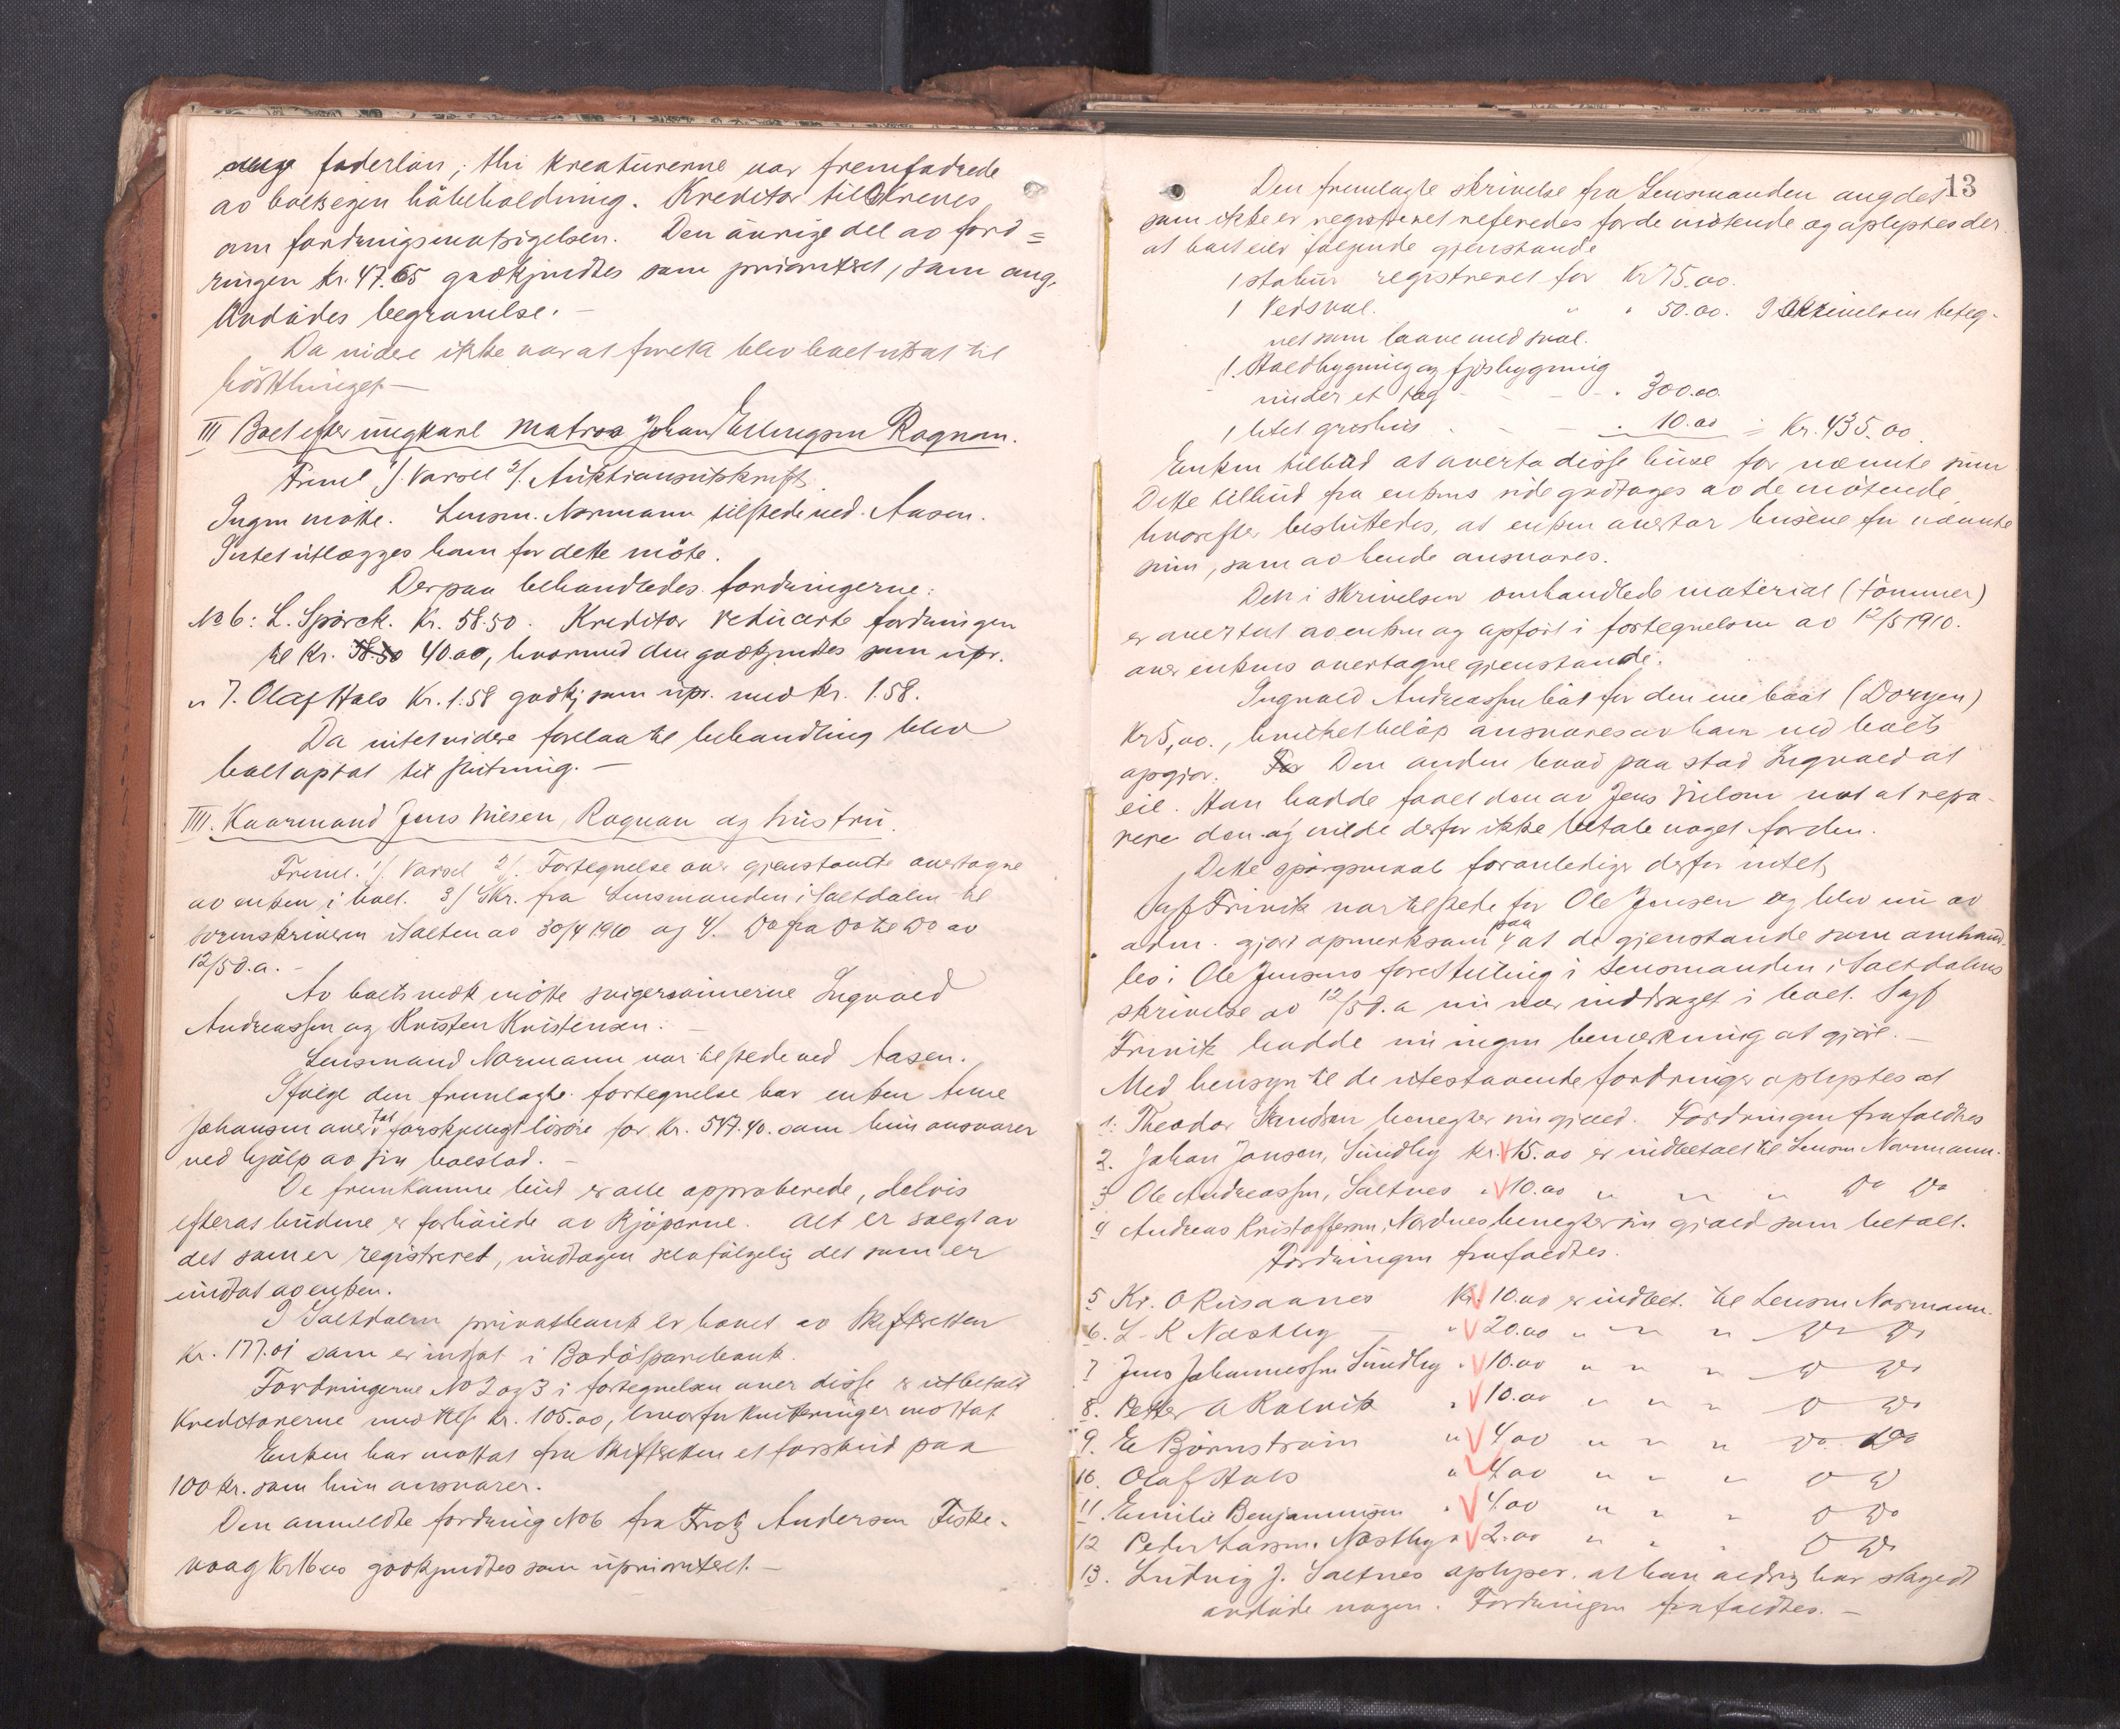 foderlån; thi kreaturerne var fremfodrede
av boets egen höbeholdning. Kreditor tilskrives
om fordringsmotsigelsen. Den övrige del av ford=
ringen kr. 47.65 godkjendtes som prioritert, som ang.
Avdödes begravelse. -
Da videre ikke var at foreta blev boet utsat til
hösttinget -
III Boet efter ungkarl matros Johan Ellingsen Rognan.
Freml 1/. Varsel 2/. Auktionsutskrift
Ingen mötte. Lensm. Normann tilstede ved Aasen.
Intet utlægges ham for dette möte.
Derpaa behandledes fordringerne:
No 6: L. Spörck. Kr. 58.50. Kreditor reducerte fordringen
til Kr. 58.50 40.00, hvormed den godkjendtes som upr.
" 7. Olaf Hals Kr. 1.58 godkj. som upr. med kr. 1.58.
Da intet videre forelaa til behandling blev
boet optat til slutning. -
IIII. Kaarmand Jens Nilsen, Rognan og hustru.
Freml. 1/. Varsel 2/. Fortegnelse over gjenstande overtagne
av enken i boet. 3/ Skr. fra Lensmanden i Saltdalen til
sorenskriveren i Salten av 30/4 1910 og 4/. Do fra Do til Do av
12/5 d.a. -
Av boets vedk mötte svigersönnerne Ingvald
Andreassen og Kristen Kristensen. -
Lensmand Normann var tilstede ved Aasen.
Ifölge den fremlagte fortegnelse har enken Anne
Johansen overtat forskjelligt lösöre for kr. 547.40. som hun ansvarer
ved hjælp av sin boeslod. -
De fremkomne bud er alle approberede, delvis
efterat budene er forhöiede av kjöperne. Alt er solgt av
det som er registreret, undtagen selvfölgelig det som er
undtat av enken.
I Saltdalen privatbank er hævet av skifteretten
kr. 177.01 som er indsat i Bodö sparebank.
Fordringerne No 2 og 3 i fortegnelsen over disse er utbetalt
kreditorerne med tils. kr. 105.00, hvorfor kvitteringer mottat
Enken har mottat fra skifteretten et forskud paa
100 kr. som hun ansvarer.
Den anmeldte fordring No 6 fra Fritz Andersen Fiske-
vaag kr 16.00 godkjendtes som uprioritert. -
13
Den fremlagte skrivelse fra Lensmanden ang det
som ikke er registreret referedes for de mötende og oplystes der
at boet eier fölgende gjenstande
1 stabur registreret for Kr 75.00.
1 Vedsval. " " 50.00. I skrivelsen beteg-
net som laave med sval.
1. Staldbygning og fjösbygning
under et tag - - - . 300.00.
1 litet grishus . - - . 10.00 = Kr. 435.00.
Enken tilböd at overta disse huse for nævnte sum
Dette tilbud fra enkens side godtages av de mötende,
hvorefter besluttedes, at enken overtar husene for nævnte
sum, som av hende ansvares.
Den i skrivelsen omhandlede material (tömmer)
er overtat av enken og opfört i fortegnelsen av 12/5 1910.
over enkens overtagne gjenstande.
Ingvald Andreassen böt for den ene baat (Doryen)
Kr 5,00., hvilket belöp ansvares av ham ved boets
opgjör. For Den anden baad paastod Ingvald at
eie. Han hadde faaet den av Jens Nilsen mot at repa-
rere den og vilde derfor ikke betale noget for den.
Dette spörgsmaal foranlediger derfor intet,
Sagf Trivik var tilstede for Ole Jensen og blev nu av
adm. gjort opmerksom paa at de gjenstande som omhand-
les i Ole Jensens forestilling i Lensmanden i Saltdalens
skrivelse av 12/5 d.a nu var inddraget i boet. Sagf
Trivik hadde nu ingen bemerkning at gjöre. -
Med hensyn til de utestaaende fordringer oplystes at
1. Theodor benegter sin gjæld. Fordringen frafaldtes
2. Johan Jansen, Sundby kr. 15.00 er indbetalt til Lensm Normann.
3 Ole Andreassen, Saltnes " 10.00 " " " Do Do
4 Andreas Kristoffersen, Nordnes benegter sin gjæld som betalt.
Fordringen frafaldtes.
5 Kr. O Rusaanes Kr. 10.00 er indbet. til Lensm Normann.
6. L. K Næstby - " 20.00 " " " Do Do
7 Jens Johannessen Sundby " 10.00 " " " Do Do
8. Petter A Rolvik " 10.00 " " " Do Do
9. E Björnström " 4.00 " " " Do Do
10. Olaf Hals " 4.00 " " " Do Do
11. Emilie Benjaminsen " 4.00 " " " Do Do
12 Peder Larsen Næstby " 2.00 " " " Do Do
13. Ludvig J. Saltnes oplyser. at han aldrig har skyldt
avdöde nogen. Fordringen frafaldtes. -